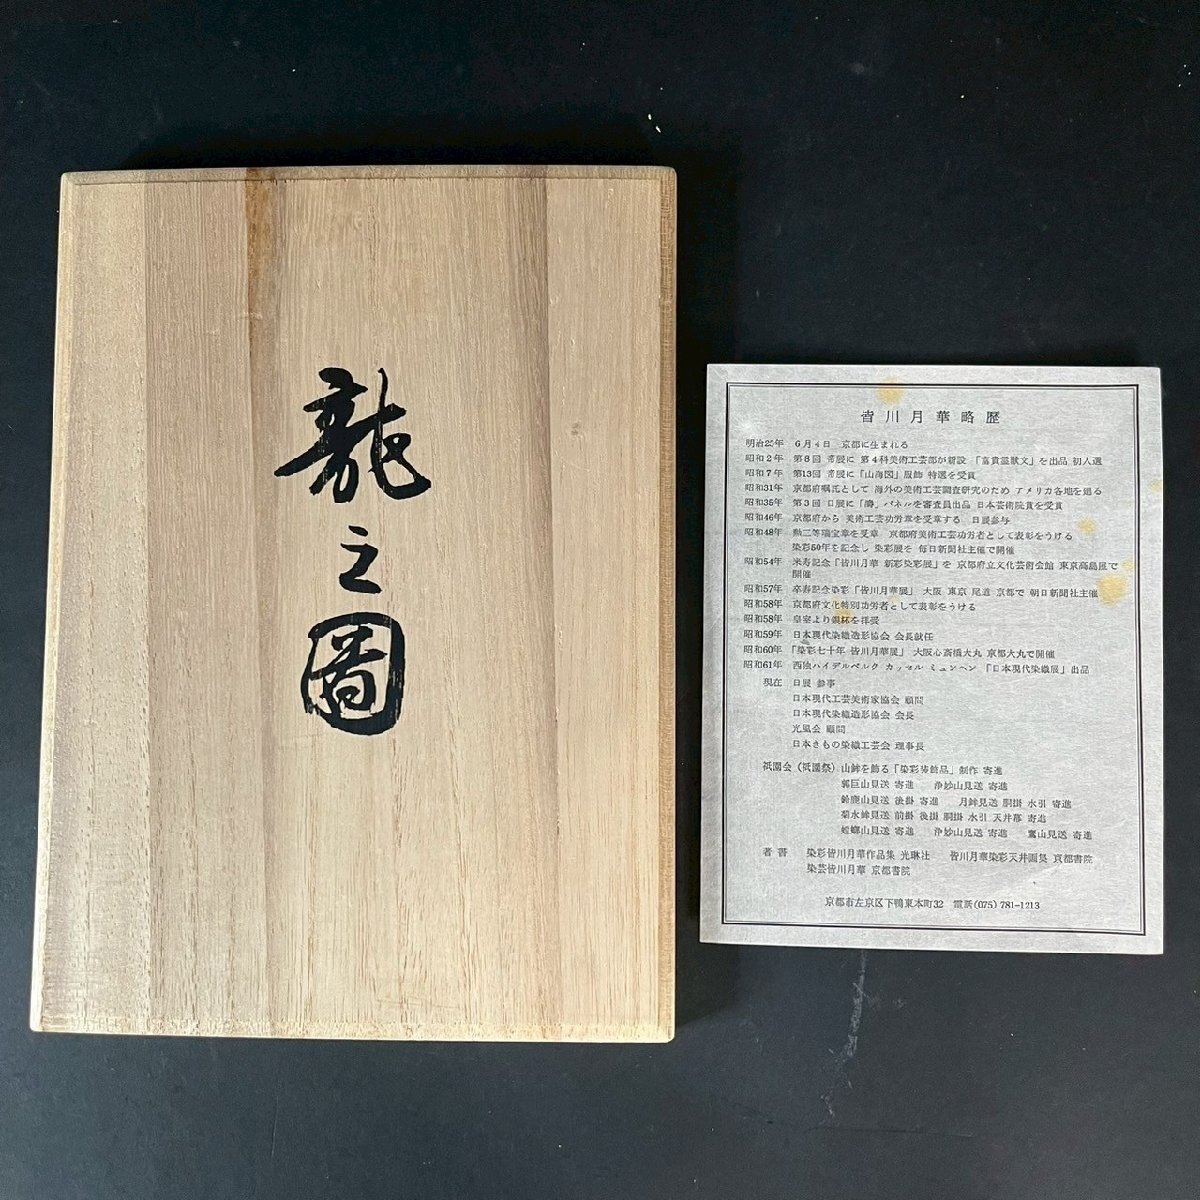 龍之圖
皆川月華略歴
明治25年 6月4日 京都に生まれる
昭和2年 第8回 帝展に 第4科美術工芸部が新設 「富貴霊獣文」を出品 初入選
昭和7年 第13回 帝展に「山海図」服飾 特選を受賞
昭和31年 京都府嘱託として 海外の美術工芸調査研究のため アメリカ各地を廻る
昭和35年 第3回 日展に「濤」パネルを審査員出品 日本芸術院賞を受賞
昭和46年 京都府から 美術工芸功労章を受章する 日展参与
昭和48年 勲二等瑞宝章を受章 京都府美術工芸功労者として表彰をうける
染彩50年を記念し 染彩展を 毎日新聞社主催で開催
昭和54年 米寿記念「皆川月華 新彩染彩展」を 京都府立文化芸術会館 東京高島屋で
開催
昭和57年 卒寿記念染彩「皆川月華展」 大阪 東京 尾道 京都で 朝日新聞社主催
昭和58年 京都府文化特別功労者として表彰をうける
昭和58年 皇室より銀杯を拝受
昭和59年 日本現代染織造形協会 会長就任
昭和60年 「染彩七十年 皆川月華展」 大阪心斎橋大丸 京都大丸で開催
昭和61年 西独ハイデルベルク カッセル ミュンヘン 「日本現代染織展」出品
現在 日展 参事
日本現代工芸美術家協会 顧問
日本現代染織造形協会 会長
光風会 顧問
日本きもの染織工芸会 理事長
祇園会(祇園祭)山鉾を飾る「染彩装飾品」制作 寄進
郭巨山見送 寄進 浄妙山見送 寄進
鈴鹿山見送 後掛 寄進 月鉾見送 胴掛 水引 寄進
菊水鉾見送 前掛 後掛 胴掛 水引 天井幕 寄進
螳螂山見送 寄進 浄妙山見送 寄進 鷹山見送 寄進
著書 染彩皆川月華作品集 光琳社 皆川月華染彩天井画集 京都書院
染芸皆川月華 京都書院
京都市左京区下鴨東本町32 電話(075)781-1213